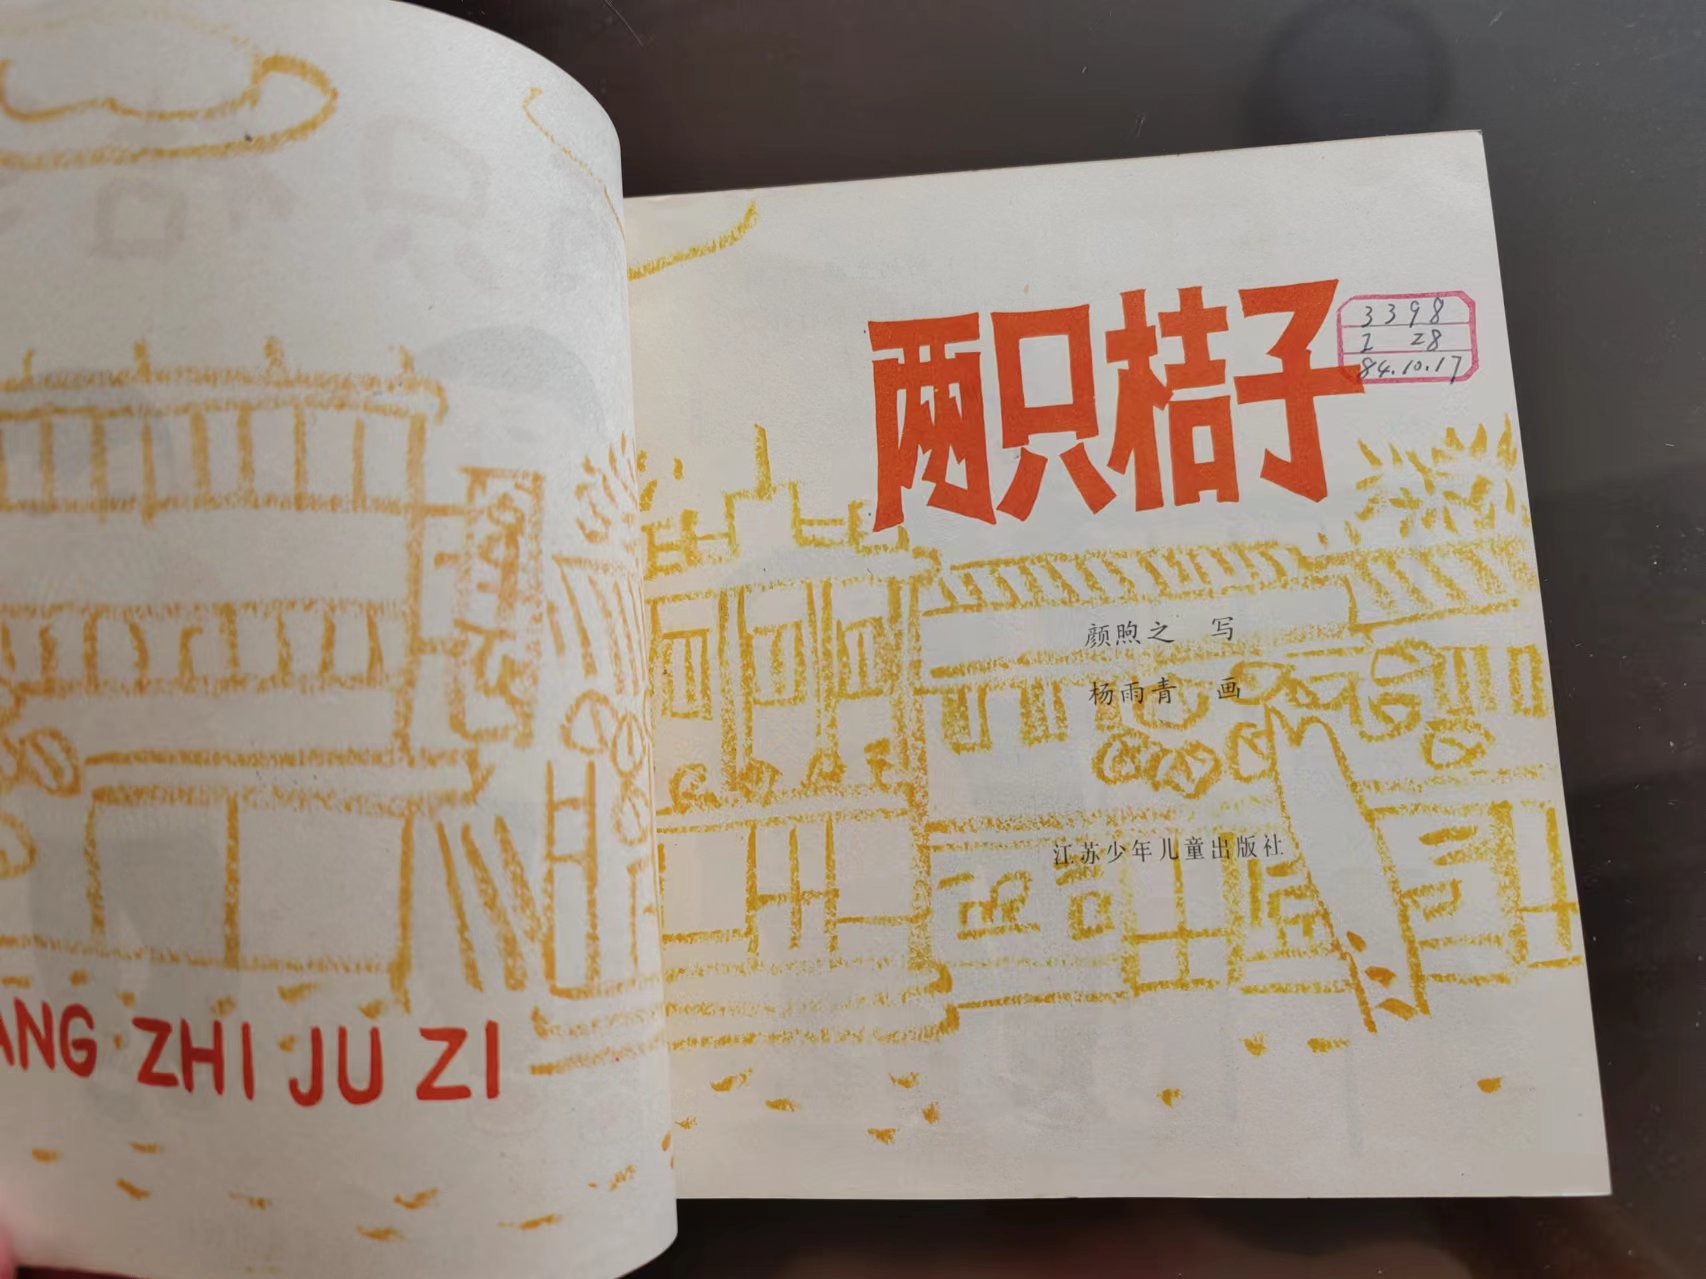 ANG ZHI JU ZI
两只桔子
3398
I 28
84.10.17
颜煦之 写
杨雨青 画
江苏少年儿童出版社